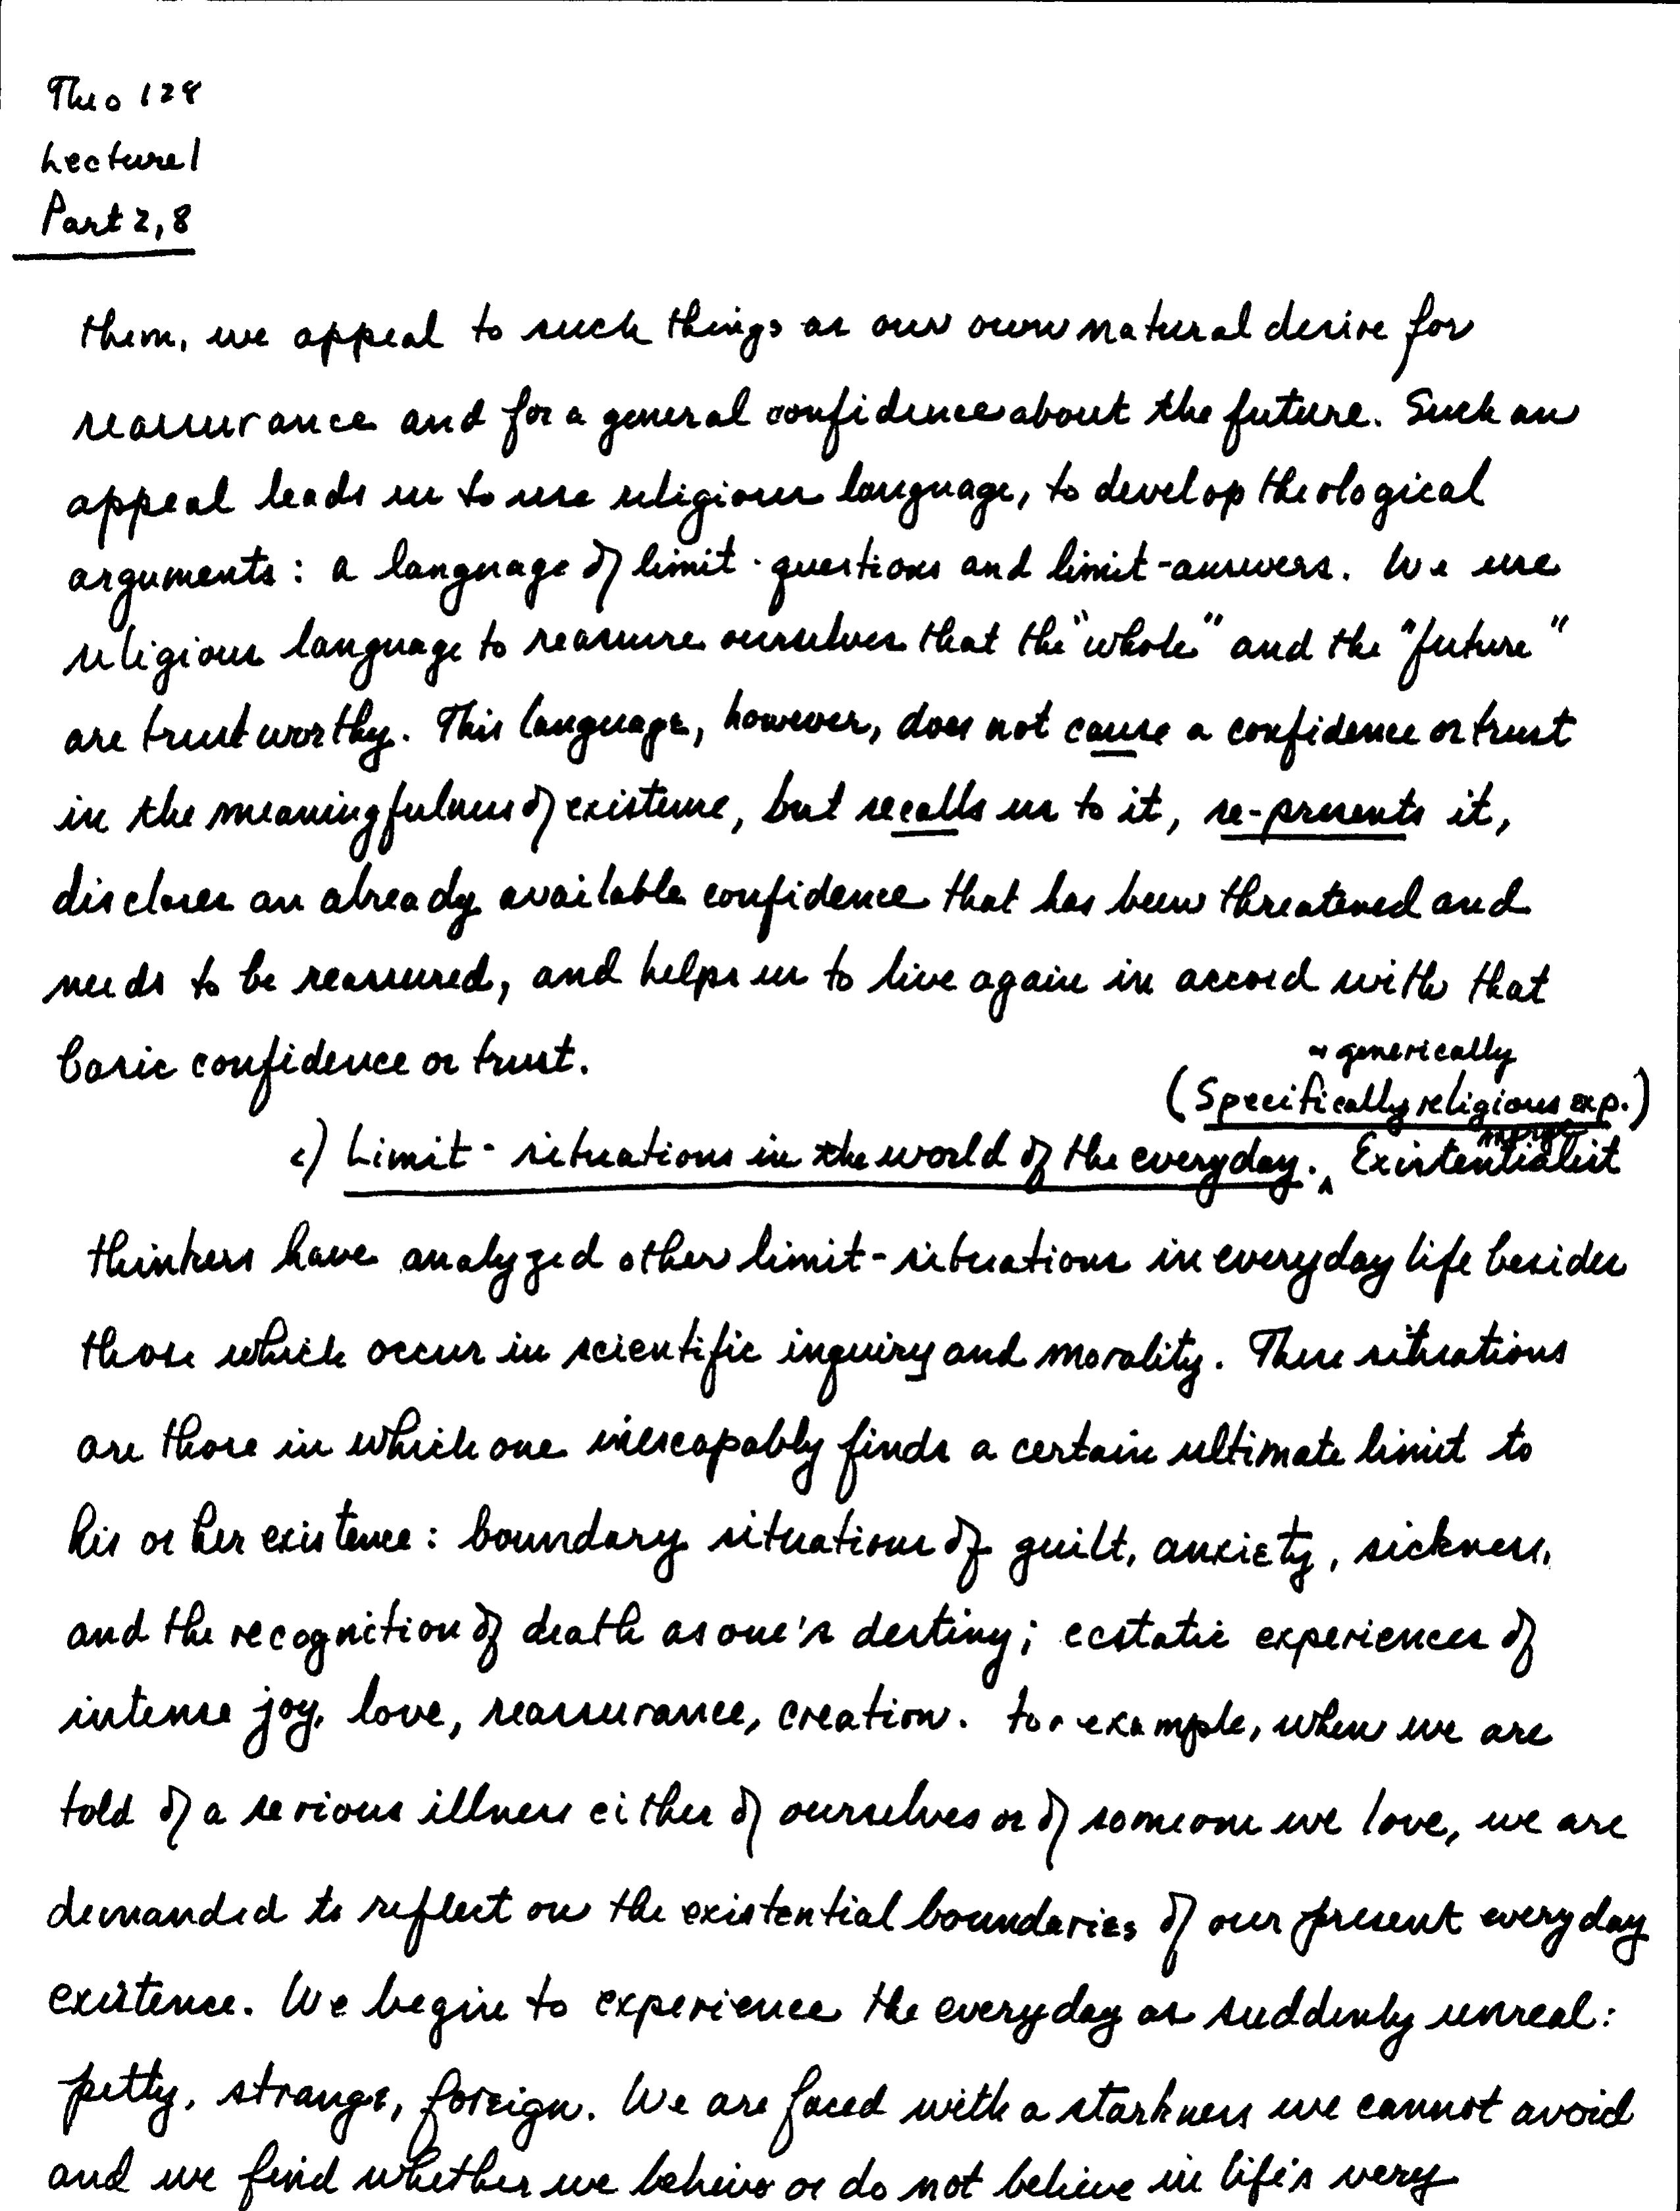 Theo 128
Lecture 1
Part 2, 8
them, we appeal to such things as our own natural desire for
reassurance and for a general confidence about the future. Such an
appeal leads us to use religious language, to develop theological
arguments: a language of limit-questions and limit-answers. We use
religious language to reassure ourselves that the "whole" and the "future"
are trustworthy. This language, however, does not cause a confidence or trust
in the meaningfulness of existence, but recalls us to it, re-presents it,
discloses an already available confidence that has been threatened and
needs to be reassured, and helps us to live again in accord with that
basic confidence or trust.
generically
(Specifically religious exp.)
c) Limit-situations in the world of the everyday. Existentialist
thinkers have analyzed other limit-situations in everyday life besides
those which occur in scientific inquiry and morality. These situations
are those in which one inescapably finds a certain ultimate limit to
his or her existence: boundary situations of guilt, anxiety, sickness,
and the recognition of death as one's destiny; ecstatic experiences of
intense joy, love, reassurance, creation. For example, when we are
told of a serious illness either of ourselves or of someone we love, we are
demanded to reflect on the existential boundaries of our present everyday
existence. We begin to experience the everyday as suddenly unreal:
petty, strange, foreign. We are faced with a starkness we cannot avoid
and we find whether we believe or do not believe in life's very